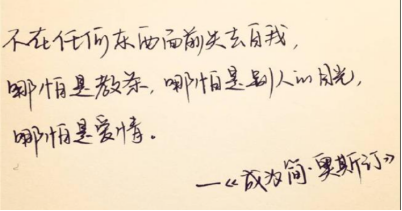 不在任何东西面前失去自我，
哪怕是教条，哪怕是别人的目光，
哪怕是爱情。
—《成为简·奥斯汀》